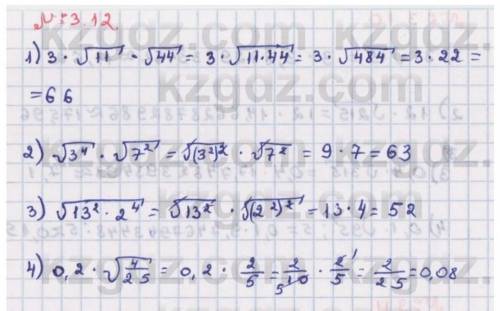 №3.12.
1) 3 · √11 · √44 = 3 · √11·44 = 3 · √484 = 3 · 22 =
= 66
2) √3⁴ · √7² = √(3²)² · √7² = 9 · 7 = 63
3) √13² · 2⁴ = √13² · √(2²)² = 13 · 4 = 52
4) 0,2 · √4/25 = 0,2 · 2/5 = 2/10 · 2/5 = 2/25 = 0,08
kzgdz.com